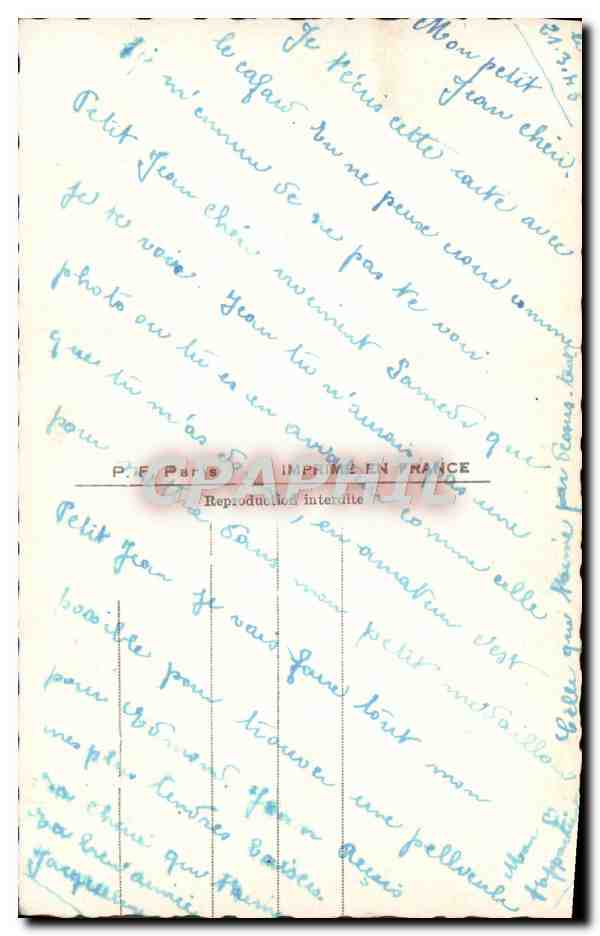 le
21.3.43
Mon petit
Jean chéri.
Je t'écris cette carte avec
le cafard. Tu ne peux croire comme
je m'ennuie de ne pas te voir.
Petit Jean chéri vivement Samedi que
je te vois. Jean tu n'aurais pas une
photo ou tu es en comme celle
que tu m'as en amateur c'est
pour dans mon petit médaillon
Petit Jean je vais faire tout mon
possible pour trouver une pellicule
pour Edmond. Jean reçois
mes plus tendres baisers.
ta chérie qui t'aime
ta bien aimée
Jacqueline
Mon
t'appartient
Celle qui t'aime par dessus tout
P.F. Paris
IMPRIMÉ EN FRANCE
Reproduction interdite
CPAPHIL